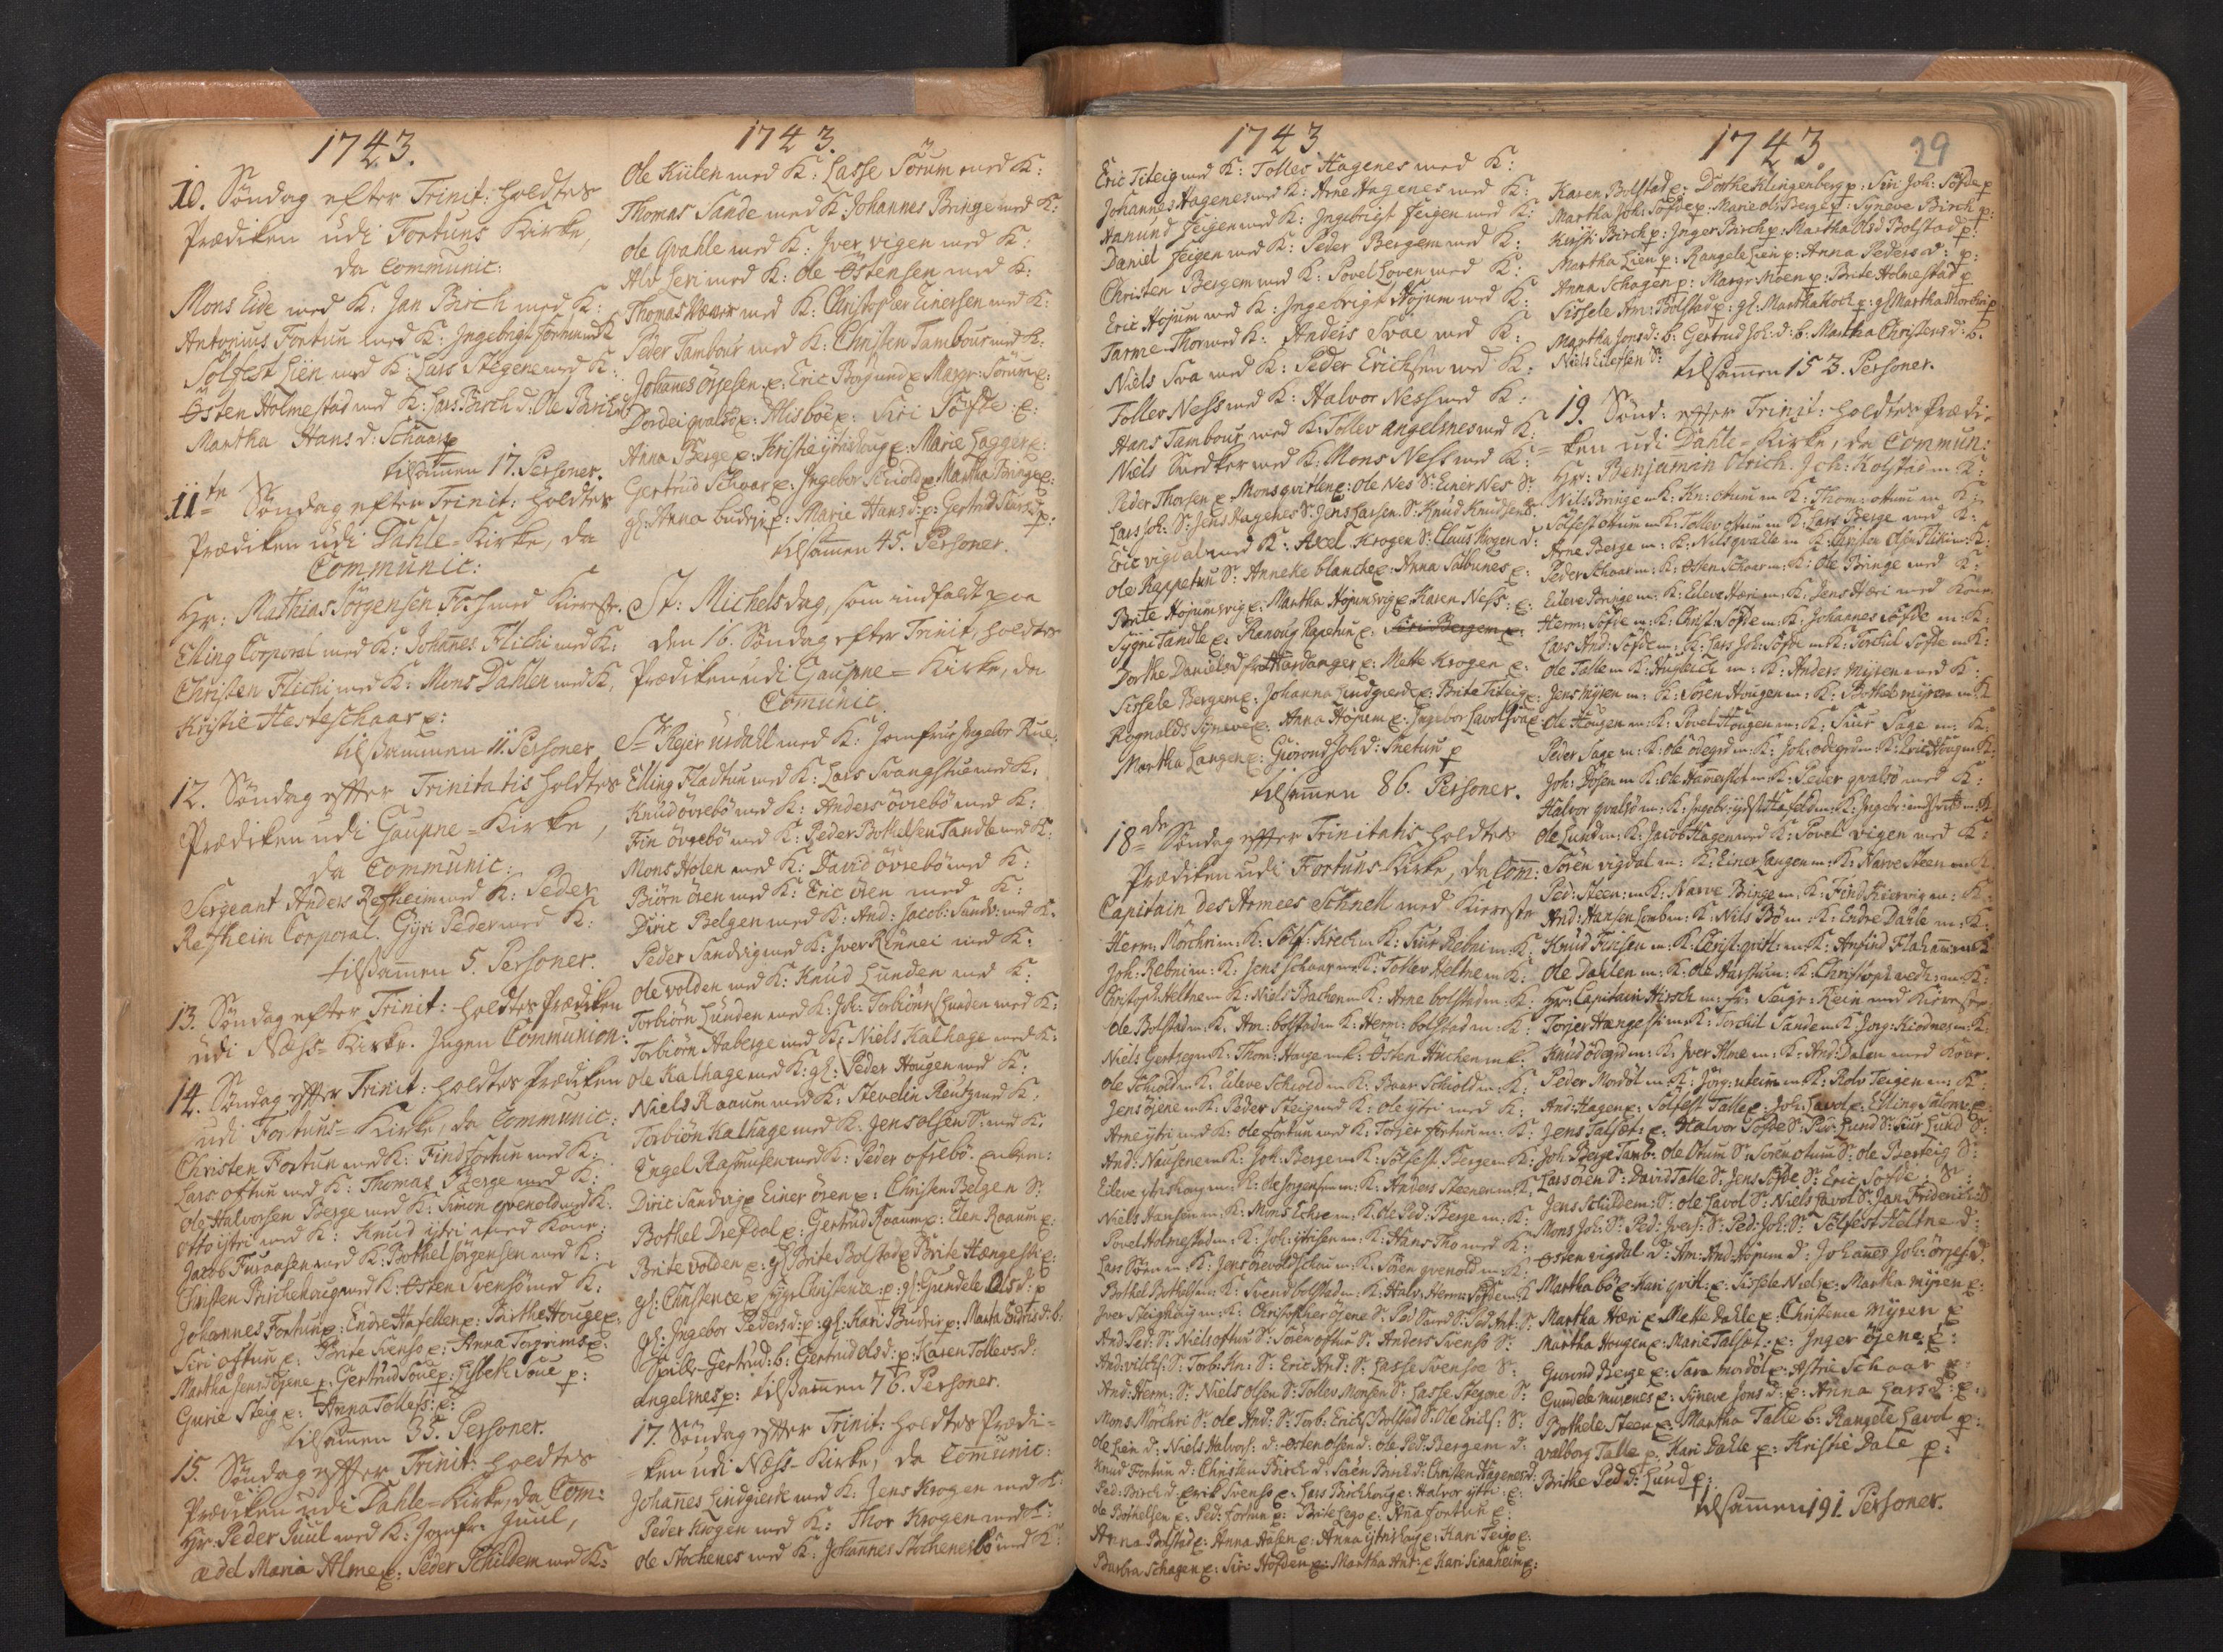 1743.
10. Søndag efter Trinit: holdtes
Prædiken udi Fortuns Kirke,
da Communic:
Mons Eide med K: Jan Birch med K:
Antonius Fortun med K: Ingebrigt
Sølfest Lien med K: Lars Stegene med K:
Østen Holmestad med K: Lars Birch d: Ole
Martha Hans d: Schaar
tilsammen 17. Personer.
11te Søndag efter Trinit: holdtes
Prædiken udi Dahle-Kirke, da
Communic:
Hr: Mathias Jørgensen med Kiereste.
Elling Corporal med K: Johannes Flichi med K:
Christen Flichi med K: Mons Dahlen med K,
Kristie Hesteschaar e:
tilsammen 11. Personer
12. Søndag effter Trinitatis holdtes
Prædiken udi Gaupne-Kirke,
da Communic:
Sergeant Anders Refheim med K: Peder
Refheim Corporal. Gyri Peder med K:
tilsammen 5. Personer.
13. Søndag efter Trinit: holdtes Prædiken
udi Næss-Kirke. Ingen Communion:
14. Søndag effter Trinit: holdtes Prædiken
udi Fortuns-Kirke, da Communic:
Christen Fortun med K: Find Fortun med K:
Lars oftun med K: Thomas Berge med K:
Ole Halvorsen Berge med K: Simon qvenold med K:
Otto ijtri med K: Knud ijtri med Kone:
Jacob Furaasen med K: Bothel Jørgensen med K:
Christen Birchehoug med K: Østen Svensø med K:
Johannes Fortun p: Endre Hafellen p: Birthe Houge e:
Siri oftun e: Brite Svensø e: Anna Torgrims e:
Martha Jens Øjene p: Gertrud Soue p: Lisbeth Soue p:
Gurie Steig e: Anna Tollefs: e:
tilsammen 35. Personer.
15. Søndag effter Trinit: holdtes
Prædiken udi Dahle-Kirke, da Com:
Hr: Peder Juul med K: Jomfr: Juul,
ædel Maria Alme e: Peder Schildem med K:
1743.
Ole Kiilen med K: Lasse Sørum med K:
Thomas Sande med K: Johannes Bringe med K:
Ole Qvahle med K: Iver vigen med K:
Alv Leri med K: Ole Østensen med K:
Thomas med K: Christopher Einersen med K:
Peder Tambour med K: Christen Tambour med K:
Johannes ørjesen e: Eric Borgund e Margr: Sørum e:
Dordei qvalsø e: Alis bøe: Siri Søfde e:
Anna Berge e: Kristie ijtrishoug e: Marie Hagger e:
Gertrud Schaar e: Ingebor Schiold e Martha Bringe e:
gl: Anna budeje p: Marie Hans d: p: Gertrud p:
tilsammen 45. Personer.
St: Michels dag, som indfaldt paa
den 16. Søndag efter Trinit, holdtes
Prædiken udi Gaupne-Kirke, da
Communic.
Sr Regir urdahl med K: Jomfrue Ingebr Rue:
Elling Fladtun med K: Lars Svangstue med K,
Knud øvrebø med K: Anders øvrebø med K:
Fin øvrebø med K: Peder Bothelsen Tandle med K:
Mons Holen med K: David øvrebø med K:
Biørn øren med K: Eric øren med K:
Diric Belgen med K: And: Jacob: Sandv: med K.
Peder Sandvig med K: Iver Rønnei med K:
Ole volden med K: Knud Lunden med K:
Torbiørn Lunden med K: Joh: Torbiørns Lunden med K:
Torbiørn Haberge med K: Niels Kalhage med K:
Ole Kalhage med K: gl: Peder Hougen med K:
Niels Raaum med K: Stevelin Rentz med K,
Torbiørn Kalhage med K: Jens olsen S: med K.
Engel Rasmusen med K: Peder ofrebø. enkem:
Diric Sandvig e Einer øren e: Christen Belgen S:
Bothel Drefdal e: Gertrud Roaum e: Elen Roaum e:
Brite volden e: gl Brite Bolstad e Brite Hængesti e:
gl: Christence e Christence: p: gl: Gundele Ols d: p
gl: Ingebor Peders d: p: gl: Kari Budeje p: Marta Endris d: b:
Spille-Gertrud: b: Gertrud ols d: p: Karen Tollevs d:
angelsnes p: tilsammen 76. Personer.
17. Søndag effter Trinit: holdtes Prædi-
ken udi Næss-Kirke, da Communic:
Johannes Lindgierde med K: Jens Krogen med K:
Peder Krogen med K: Thor Krogen med K:
Ole Stochenes med K: Johannes Stochenes bø med K:
1743
Eric Titeig med K: Tollev Hagenes med K:
Johannes Hagenes med K: Arne Hagenes med K:
Hanund Feigen med K: Ingebrigt Feigen med K:
Daniel Feigen med K: Peder Bergem med K:
Christen Bergem med K: Povel Loven med K:
Eric Højum med K: Ingebrigt Højum med K:
Tarme-Thor med K: Anders Svae med K:
Niels Sva med K: Peder Erichsen med K:
Tollev Ness med K: Halvor Ness med K:
Hans Tambour med K: Tollev angelsnes med K:
Niels Snedker med K: Mons Ness med K:
Peder Thorsen e: Mons qvitlen e: Ole Nes S: Einer Nes S:
Lars Joh: S: Jens Hagenes S: Jens Larsen. S: Knud Knudsen S:
Eric vigdal med K: Axel Krogen S: Claus Krogen d:
Ole Rappetun S: Anneke blanche e: Anna Salbunes e:
Brite Højumsvig e: Martha Højumsvig e: Karen Ness: e:
Sygni Tandle e: Ranoug Rapetun e: Siri Bergem e:
Dorthe Daniels d fr Hardanger e: Mette Krogen e:
Sissele Bergem e: Johanna Lindgierde e: Brite Titeig e:
Rognalds Syneve e: Anna Højum e: Ingebor Lavols Sva e:
Martha Langen e: Giorond Joh d: Snetun p
tilsammen 86. Personer.
18de Søndag effter Trinitatis holdtes
Prædiken udi Fortuns-Kirke, da Com:
Capitain des Armees Schnell med Kiereste
Herm: Mørchri m: K: Sølf: Kroch m K: Siur Rebni m: K:
Joh: Rebni m: K: Jens Schaar m: K: Tollev Heltne m K:
Christoph: Heltne m K: Niels Bachen m K: Arne bolstad m: K:
Ole Bolstad m: K. Am: bolstad m K: Herm: bolstad m: K:
Niels Gertzeg m K: Thom: Hauge m K: Østen Huchen m K.
Ole Schiold m K: Eileve Schiold m K: Baar Schiold m: K:
Jens øjene m K: Peder Steig med K: Ole ijtri med K:
Arne ijtri med K: Ole Fortun med K: Torjer Fortun m: K:
And: Nausene m K: Joh: Berge m K: Sølfest Berge m K:
Eileve ijtrishoug m: K: Ole Jørgensen m: K: Anders Steene m: K,
Niels Hansen m: K: Mons Echre m: K: Ole Ped: Berge m: K:
Povel Holmestad m: K: Joh: ijtrisen m: K: Hans Tho med K:
Lars Søren m: K: Jens Grevold Schou m: K: Søren qvenold m: K:
Bothel Bothels m: K: Svend bolstad m: K: Halv: Herm: Søfde m: K
Iver Steighoug m: K: Christopher øjene S: Ped: S: Ped Ant: S:
And Ped: S: Niels oftun S: Søren oftun S: Anders Svensø S:
And: vilchs: S: Torb: Kn: S: Eric And: S: Lasse Svensøe S:
And: Herm: S: Niels olsen S: Tollev Monsen S: Lasse Stegene S:
Mons Mørchri S: Ole And: S: Torb: Erichs Bolstad S: Ole Erichs: S:
Ole Lien d: Niels Halvors: d: Østen olsen d: Ole Ped: Bergem d:
Knud Fortun d: Christen Birch d: Søren Birch d: Christen Hagenes d:
Ped: Birch d: Erik Svensø e: Lars Birchhoug e: Halvor ijtri: e:
Ole Bothelsen e: Ped: Fortun e: Brite Lego e: Anna Fortun e:
Anna Bolstad e: Anna Aasen e: Anna ijtrishoug e: Kari Teige e:
Barbra Schagen e: Siri Hofden e: Martha Ant: e Kari Linaheim e:
1743.
29
Karen Bolstad e: Dorthe Klingenberg p: Siri Joh: Søfde p
Martha Joh: Søfde p: Marie ols Berge p: Syneve Birch p:
Kirsti Birch p: Inger Birch p: Martha Ols d Bolstad p:
Martha Lien p: Rangele Lien p: Anna Peders d: p:
Anna Schagen p: Margr Moen p: Brite Holmestad p
Sissele Arn: Bolstad p: gl: Martha Koch p: gl Martha Mørchri p
Martha Jons d: b: Gertrud Joh: d: b: Martha Christens d: b.
Niels Eilefsen S:
tilsammen 153. Personer.
19. Sønd: effter Trinit: holdtes Prædi-
ken udi Dahle-Kirke, da Commun:
Hr: Benjamin Olrich. Joh: Kolstad m: K:
Nils Bringe m K: Kn: ottum m K: Thom: ottum m K:
Sølfest ottum m K: Tollev ottum m K: Lars Berge med K:
Arne Berge m: K: Nils qvahle m K: Christen Ols: Flichi m: K:
Peder Schaar m: K: Osten Schaar m: K: Ole Bringe med K:
Eileve Bringe m: K: Eileve Hæri m: K: Jens Hæri med Kone
Herm: Søfde m: K: Christ: Søfde m: K: Johannes Søfde m: K:
Lars And: Søfde m: K: Lars Joh: Søfde m K: Torchil Søfde m K:
Ole Talle m K: Hugleich m: K: Anders Mijren med K:
Jens Mijren m: K: Søren Hougen m: K: Bothel mijren m: K
Ole Hougen m: K: Povel Hougen m: K: Siur Sage m: K:
Peder Sage m: K: Ole ødegrd m: K: Joh: ødegrd m: K: Eric Hougen K:
Joh: Døsen m K: Ole Hamerslot m K: Peder qvalsø med K:
Halvor qvalsø m: K: Ingebr: ijdst Hafeld m: K: Ingebr: indst m: K
Ole Lund m: K: Jacob Hagen med K: Povel vigen med K:
Søren vigdal m: K: Einer Langen m: K: Narve Steen m: K
Ped: Steen: m K: Narve Bringe m: K: Find Kiervig m: K
And: Hansen Lomb m: K: Nils Bø m: K: Endre Dahle m: K:
Knud Finsen m: K: Christ: qvitl: m: K: Anfind Flahamr m: K
Ole Dahlen m: K: Ole Aarstu m: K: Christoph vedh: m: K:
Hr: Capitain Hirsch m: fr: Seigr: Rein med Kiereste:
Torjer Hængesti m K: Torchil Sande m K: Jørg: Kiodnes m: K:
Knud ødegrd m: K: Iver Alme m: K: And: Dalen med Kone.
Peder Mordøl m K: Jørg: utein m K: Rolv Teigen m: K:
And: Hagen e: Sølfest Talle e: Joh: Lavol e: Elling Salom e:
Jens Talset: e: Halvor Søfde S: Per: Lund S: Siur Lund S:
Joh: Berge Tamb: Ole Otum S: Søren otum S: Ole Berteig S:
Lars øren S: David Talle S: Jens Søfde S: Eric Søfde S:
Jens Schildem: S: Ole Lavol S: Niels Lavol S: Jan Friderich S:
Mons Joh: S: Ped: Ivers: S: Ped: Joh: S: Sølfest Heltne d:
Østen vigdal d: Am: And: Højum d: Johanes Joh: ørjes d:
Martha bø e: Kari qvitl: e: Sissele Niels e: Martha mijren e:
Martha Hæri e: Mette Dahle e: Christence Mijren e
Martha Hougen e: Marie Talset: e: Inger øjene: e:
Gurund Berge e: Sara mordøl e: Astrie Schaar e:
Gundele murenes e: Syneve Jons d: e: Anna Lars d: e:
Bothele Steen e: Martha Talle b: Rangele Lavol p:
Valborg Talle p: Kari Dahle p: Kristie Dale p:
Brithe Ped d: Lund p:
tilsammen 191. Personer.